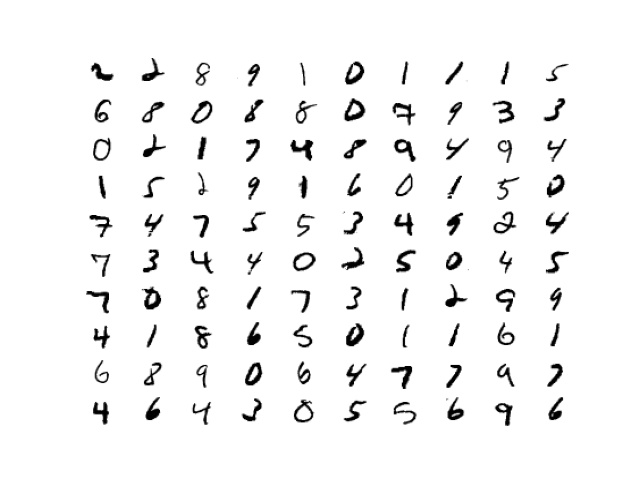 2 2 8 9 1 0 1 1 1 5
6 8 0 8 8 0 7 9 3 3
0 2 1 7 4 8 9 4 9 4
1 5 2 9 1 6 0 1 5 0
7 4 7 5 5 3 4 9 2 4
7 3 4 4 0 2 5 0 4 5
7 0 8 1 7 3 1 2 9 9
4 1 8 6 5 0 1 1 6 1
6 8 9 0 6 4 7 7 9 7
4 6 4 3 0 5 5 6 9 6